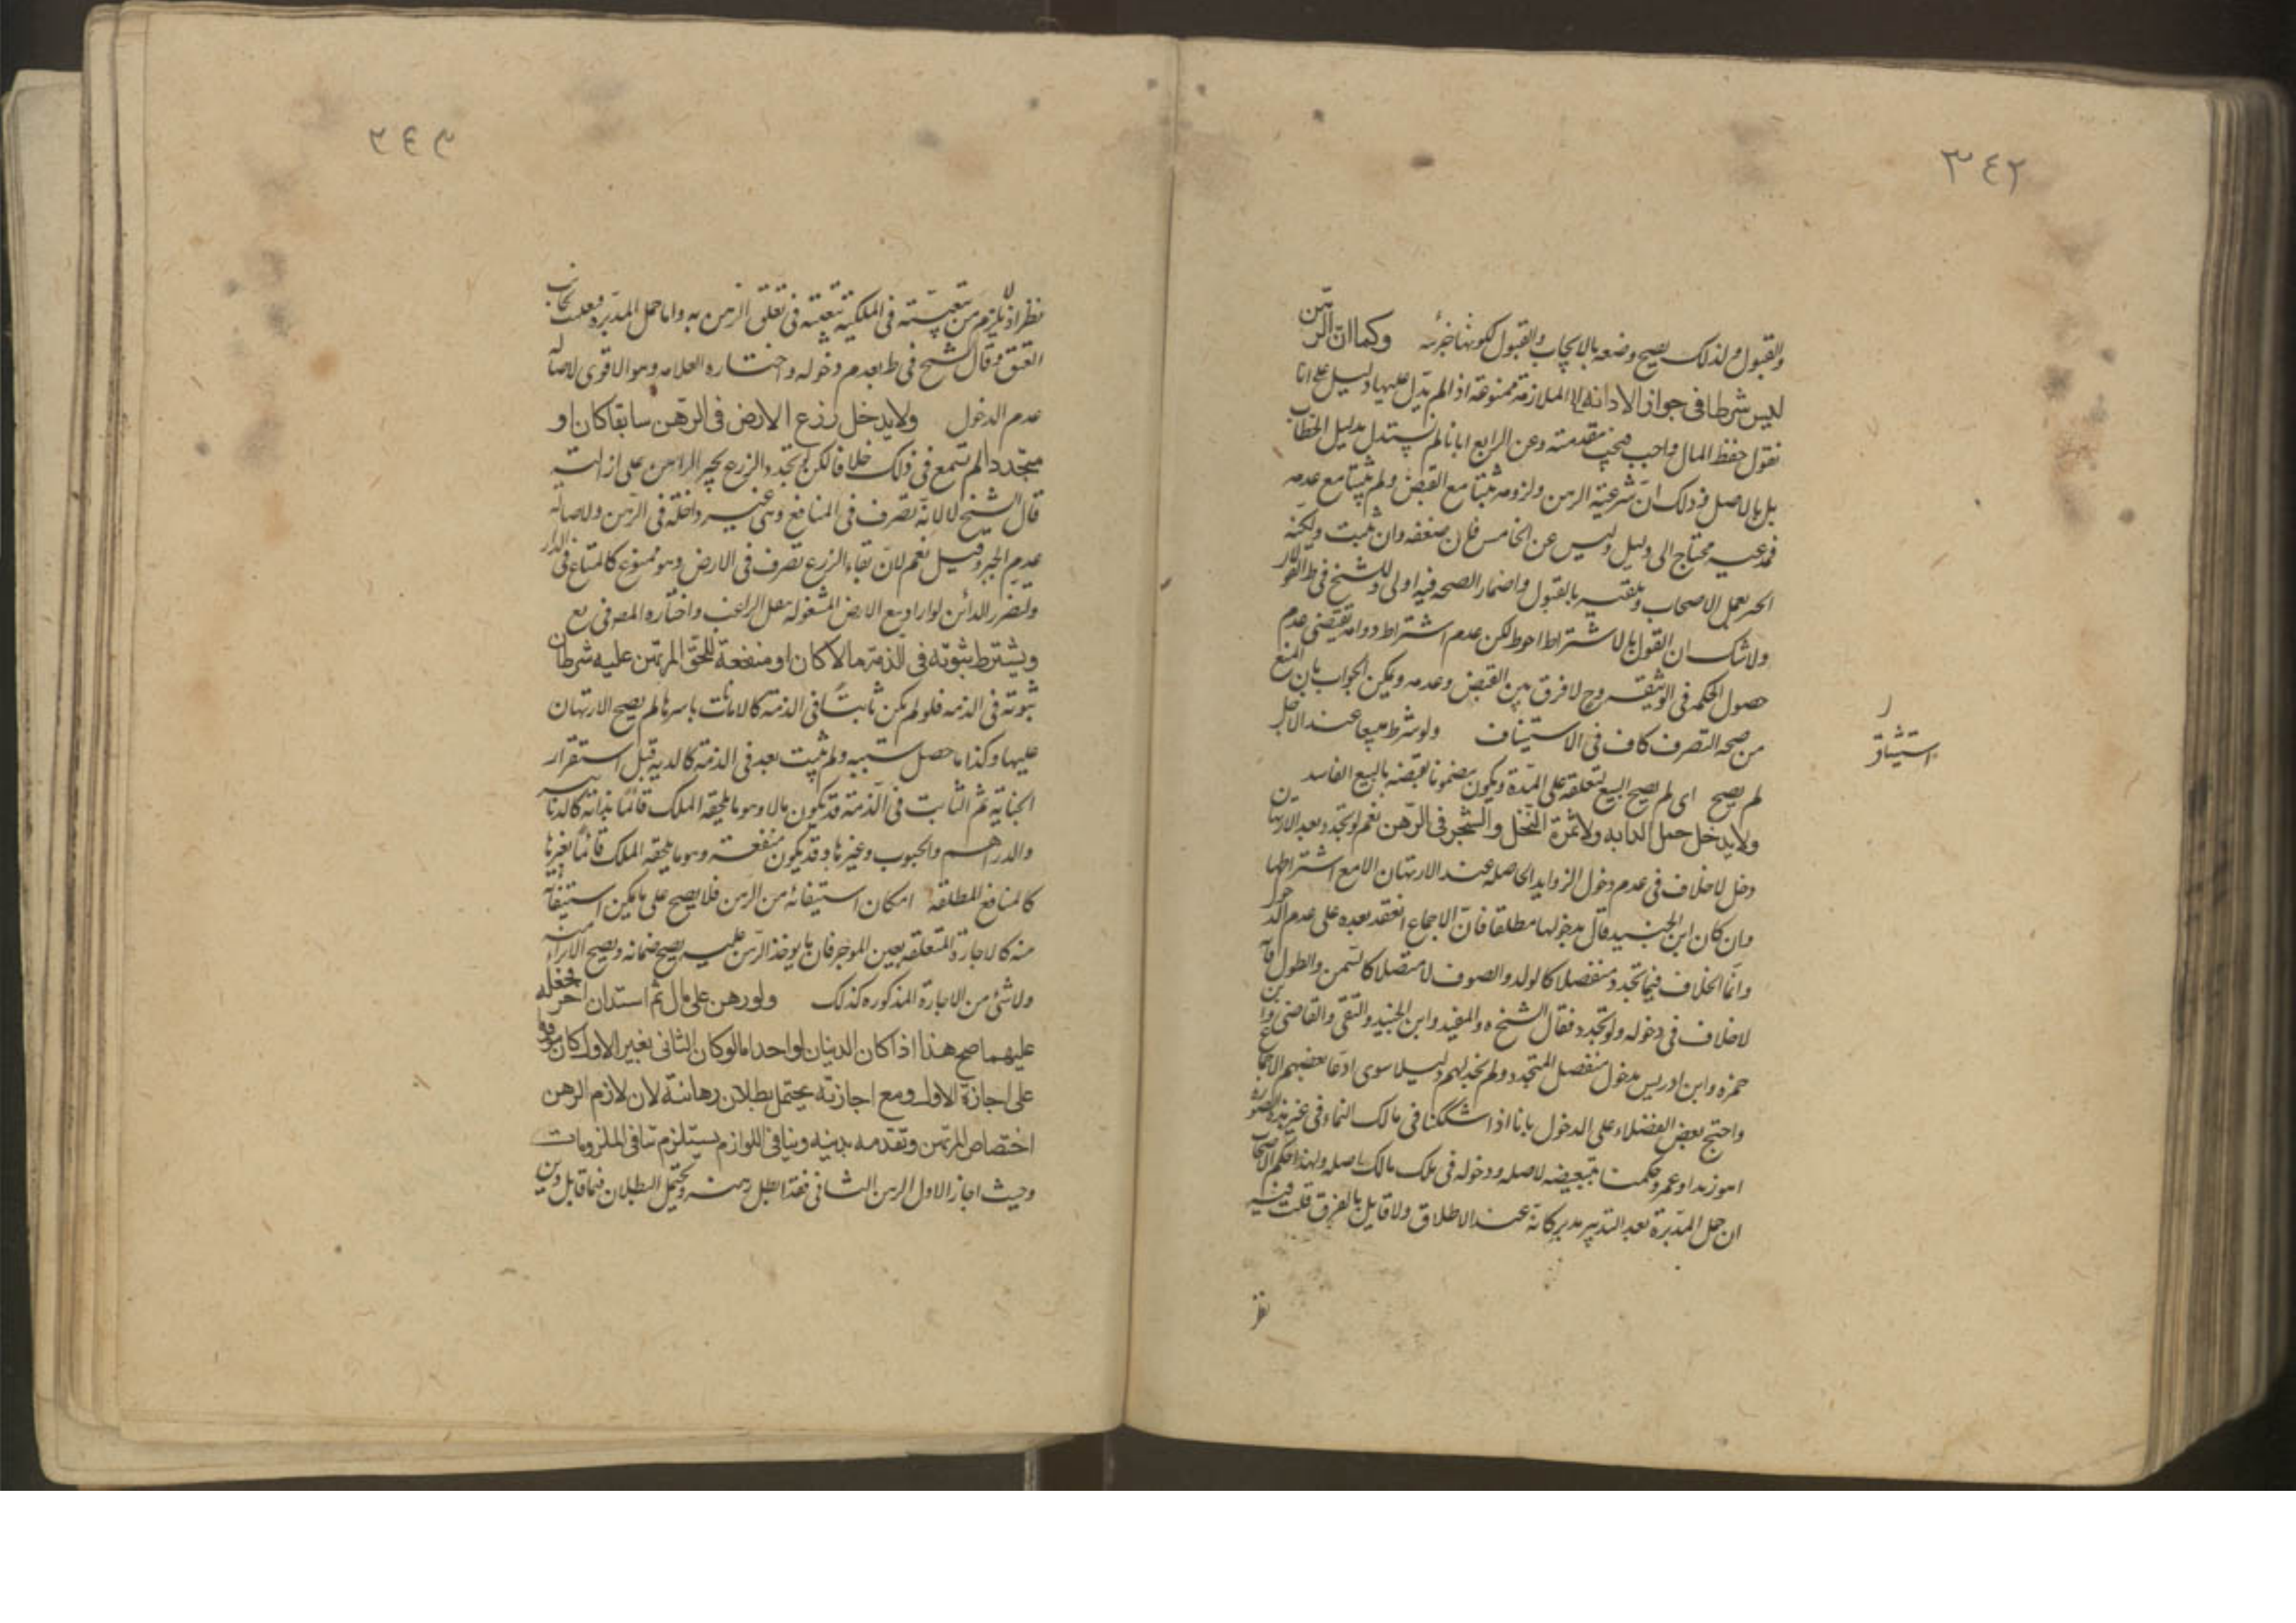 ٣٤٢
والقبول ولذلك يصح وضعه بالايجاب والقبول لكونها جزئيه وكما ان الرهن
ليس شرطا فى جواز الادانه الملازمة ممنوعة اذ لم يدل عليها دليل على انا
نقول حفظ المال واجب فيجب مقدمته وعن الرابع ابانا لم يستدل بدليل الخطاب
بل بالاصل وذلك ان شرعية الرهن ولزومه ثبتا مع القبض ولم يثبتا مع عدمه
فمدعيه محتاج الى دليل وليس عن الخامس فلان ضعفه وان ثبت ولكنه
بعمل الاصحاب وتلقيه بالقبول واضمار الصحه فيه اولى وللشيخ فى ط
ولا شك ان القول بالاشتراط احوط لكن عدم اشتراط دوامه يقتضى عدم
حصول الحكمه فى الوثيقه وح لا فرق بين القبض وعدمه ويمكن الجواب بان المنع
من صحه التصرف كاف فى الاستيناف ولو شرط مبيعا عند الاجل
استيثاق
لم يصح اى لم يصح البيع لتعلقه على المدة ويكون مضمونا بقبضه بالبيع الفاسد
ولا يدخل حمل الدابه ولا ثمرة النخل والشجر فى الرهن نعم لو تجدد بعد الارتهان
دخل لا خلاف فى عدم دخول الزوايد الحاصله عند الارتهان الا مع اشتراطها
وان كان ابن الجنيد قال بدخولها مطلقا فان الاجماع انعقد بعده على عدم الدخول
وانما الخلاف فيما تجدد منفصلا كالولد والصوف لا متصلا كالسمن والطول فانه
لا خلاف فى دخوله ولو تجدد فقال الشيخ والمفيد وابن الجنيد والتقى والقاضى وابن
حمزه وابن ادريس بدخول منفصل المتجدد ولم نجد لهم دليلا سوى ادعا بعضهم الاجماع
واحتج بعض الفضلاء على الدخول بانا اذا شككنا فى مالك النماء فى غير هذه الصوره
اهو زيد او عمرو حكمنا بتبعيضه لاصله ودخوله فى ملك مالك اصله ولهذا حكم الاصحاب
ان حمل المدبرة بعد التدبير مدبر كانه عند الاطلاق ولا قايل بالفرق قلت فيه
نظر
٣٤٣
نظر اذ لا يلزم من تبعيته فى الملكية تبعيته فى تعلق الرهن به واما حمل المدبره فغلب بجانب
العتق وقال الشيخ فى ط بعدم دخوله واختاره العلامه وهو الاقوى لاصاله
عدم الدخول ولا يدخل زرع الارض فى الرهن سابقا كان او
متجددا لم نسمع فى ذلك خلافا لكن لو تجدد الزرع يجبر الراهن على ازالته
قال الشيخ لا لانه تصرف فى المنافع وهى غير داخلة فى الرهن ولاصالة
عدم الجبر وقيل نعم لان بقاء الزرع تصرف فى الارض وهو ممنوع كالمتاع فى الدار
وليضرر الدائن لو اراد بيع الارض المشغوله بقل الراغب واختاره المصه فى بع
ويشترط ثبوته فى الذمة مالا كان او منفعة للحق المرتهن عليه شرطان
ثبوته فى الذمه فلو لم يكن ثابتا فى الذمة كالامانات باسرها لم يصح الارتهان
عليها وكذا ما حصل سببه ولم يثبت بعد فى الذمة كالديه قبل استقرار
الجناية ثم الثابت فى الذمة قد يكون مالا وهو ما يلحقه الملك قائما بذاته كالدنانير
والدراهم والحبوب وغيرها وقد يكون منفعة وهو ما يلحقه الملك قائما بغيرها
كالمنافع المطلقه امكان استيفائه من الرهن فلا يصح على ما يمكن استيفائه
منه كالاجارة المتعلقه بعين الموجر فان ما يوخذ الرهن عليه يصح ضمانه ويصح الابراء منه
ولا شئ من الاجارة المذكوره كذلك ولو رهن على مال ثم استدان اخر فجعله
عليهما صح هذا اذا كان الدينان لواحد اما لو كان الثانى بغير الاول كان موقوفا
على اجازة الاول ومع اجازته يحتمل بطلان رهانته لان لازم الرهن
اختصاص المرتهن وتقدمه بدينه وتنافى اللوازم يستلزم تنافى الملزومات
وحيث اجاز الاول الرهن الثانى فقد ابطل رهنه ويحتمل البطلان فيما قابل دين